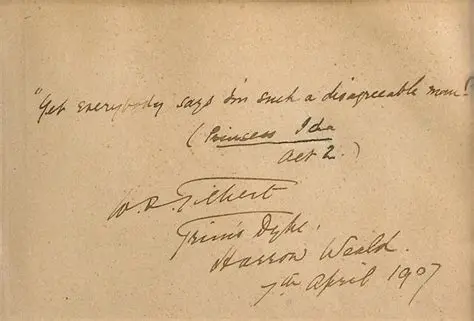 "Yet everybody says I'm such a disagreeable man!
(Princess Ida
Act 2.)
W. S. Gilbert
Grim's Dyke.
Harrow Weald.
7th April 1907